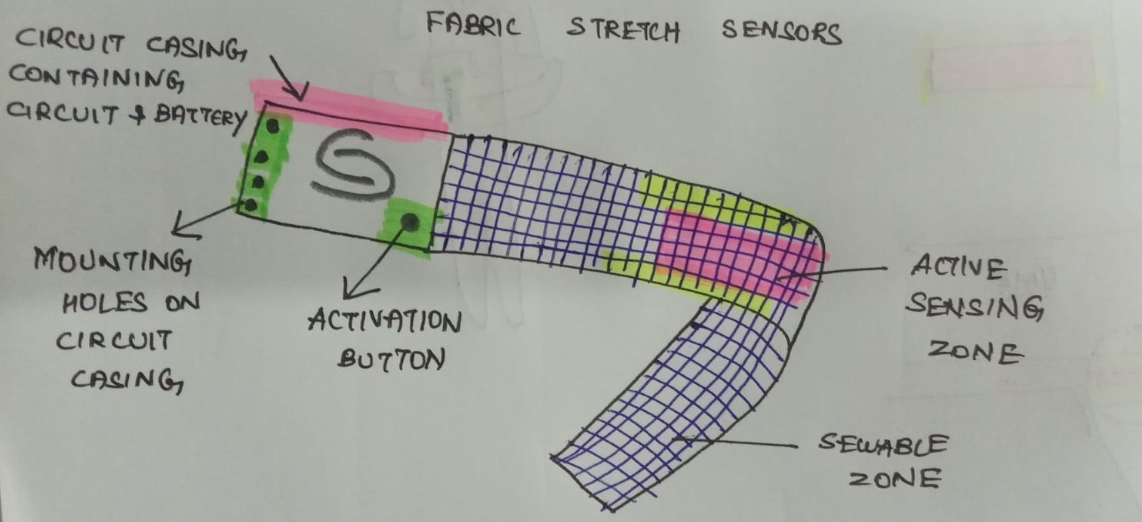 FABRIC STRETCH SENSORS
CIRCUIT CASING
CONTAINING
CIRCUIT & BATTERY
S
MOUNTING
HOLES ON
CIRCUIT
CASING
ACTIVATION
BUTTON
ACTIVE
SENSING
ZONE
SEWABLE
ZONE